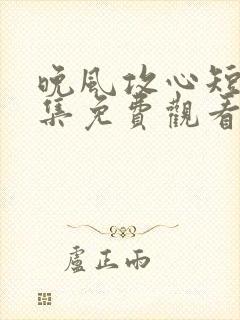 晚風攻心短
集免費觀看
盧正雨